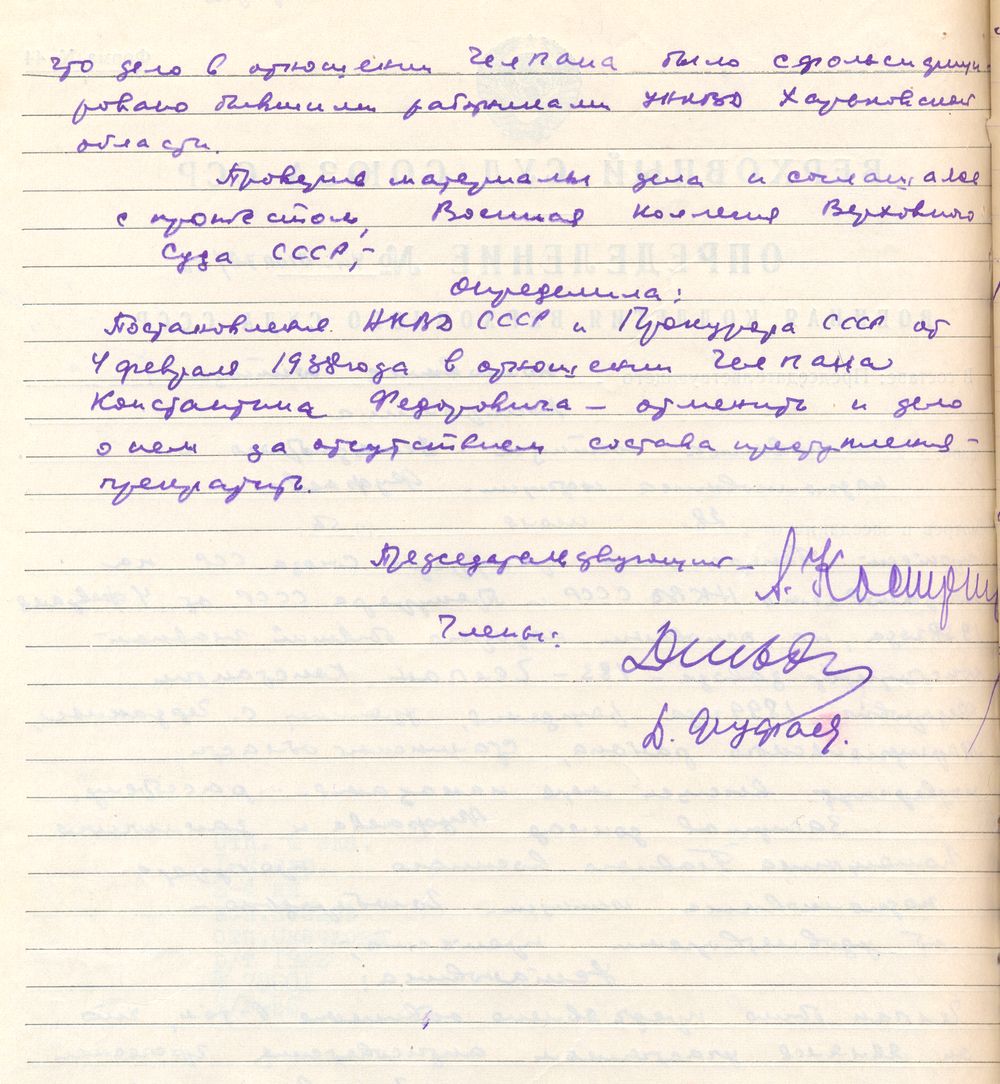 что дело в отношении Челпана было сфальсифици-
ровано бывшими работниками УНКВД Харьковской
области.
Проверив материалы дела и соглашаясь
с протестом, Военная коллегия Верховного
Суда СССР,-
определила:
Постановление НКВД СССР и Прокурора СССР от
4 февраля 1938 года в отношении Челпана
Константина Федоровича - отменить и дело
о нем за отсутствием состава преступления -
прекратить.
Председательствующий - А. Костром
Члены: